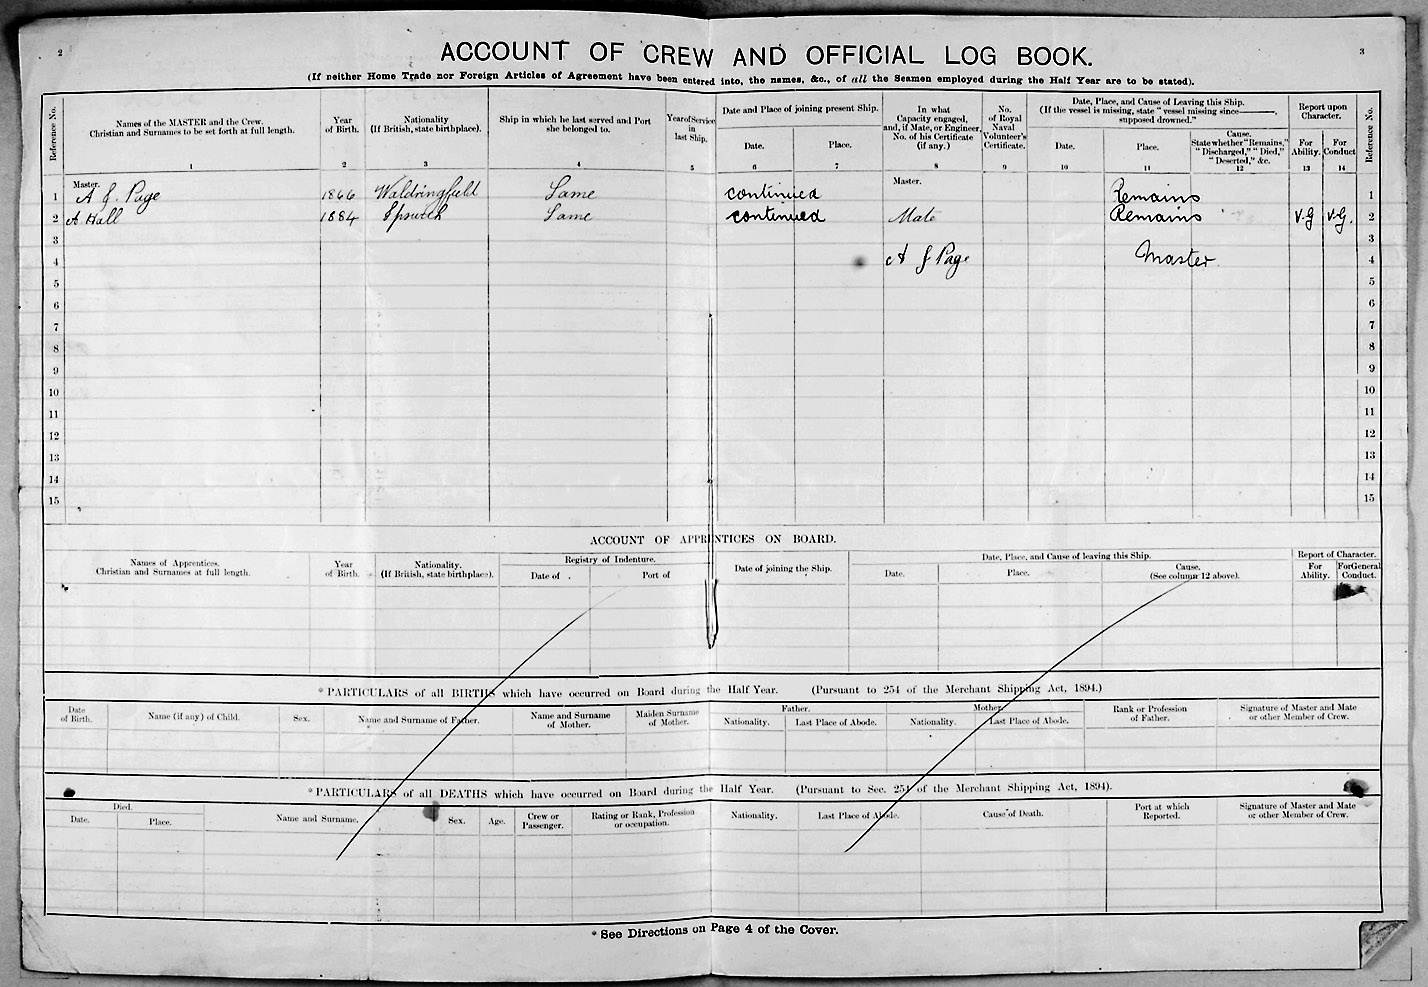 2
3
ACCOUNT OF CREW AND OFFICIAL LOG BOOK.
(If neither Home Trade nor Foreign Articles of Agreement have been entered into, the names, &c., of all the Seamen employed during the Half Year are to be stated).
Reference No.
Names of the MASTER and the Crew.
Christian and Surnames to be set forth at full length.
1
Year
of Birth.
2
Nationality
(If British, state birthplace).
3
Ship in which he last served and Port
she belonged to.
4
Year of Service
in
last Ship.
5
Date and Place of joining present Ship.
Date.
6
Place.
7
In what
Capacity engaged,
and, if Mate, or Engineer,
No. of his Certificate
(if any.)
8
No.
of Royal
Naval
Volunteer's
Certificate.
9
Date, Place, and Cause of Leaving this Ship.
(If the vessel is missing, state "vessel missing since———,
supposed drowned."
Date.
10
Place.
11
Cause.
State whether "Remains,"
"Discharged," "Died,"
"Deserted," &c.
12
Report upon
Character.
For
Ability.
13
For
Conduct
14
Reference No.
1 Master. A J. Page 1866 Waldringfield Same continued Master. Remains 1
2 A Hall 1884 Ipswich Same continued Mate Remains V.G V.G. 2
3 3
4 A J Page Master 4
5 5
6 6
7 7
8 8
9 9
10 10
11 11
12 12
13 13
14 14
15 15
ACCOUNT OF APPRENTICES ON BOARD.
Names of Apprentices.
Christian and Surnames at full length.
Year
of Birth.
Nationality.
(If British, state birthplace).
Registry of Indenture.
Date of
Port of
Date of joining the Ship.
Date, Place, and Cause of leaving this Ship.
Date.
Place.
Cause.
(See column 12 above).
Report of Character.
For
Ability.
For General
Conduct.
*PARTICULARS of all BIRTHS which have occurred on Board during the Half Year. (Pursuant to 254 of the Merchant Shipping Act, 1894.)
Date
of Birth.
Name (if any) of Child.
Sex.
Name and Surname of Father.
Name and Surname
of Mother.
Maiden Surname
of Mother.
Father.
Nationality.
Last Place of Abode.
Mother.
Nationality.
Last Place of Abode.
Rank or Profession
of Father.
Signature of Master and Mate
or other Member of Crew.
*PARTICULARS of all DEATHS which have occurred on Board during the Half Year. (Pursuant to Sec. 254 of the Merchant Shipping Act, 1894).
Died.
Date.
Place.
Name and Surname.
Sex.
Age.
Crew or
Passenger.
Rating or Rank, Profession
or occupation.
Nationality.
Last Place of Abode.
Cause of Death.
Port at which
Reported.
Signature of Master and Mate
or other Member of Crew.
* See Directions on Page 4 of the Cover.